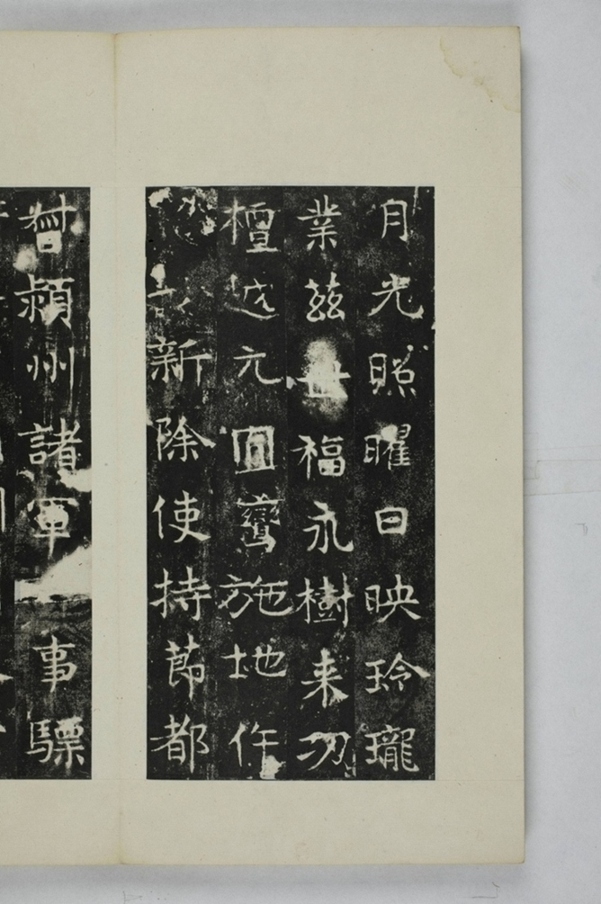 月光照曜日映玲瓏
業茲世福永樹来刧
檀越元
施地作
新除使持節都
督潁州諸軍事驃